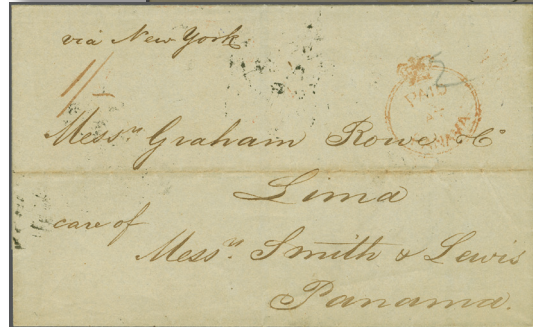 via New York
1/-
PAID
AT
PANAMA
2
Messrs Graham Rowe & Co
Lima
care of
Messrs Smith & Lewis
Panama.